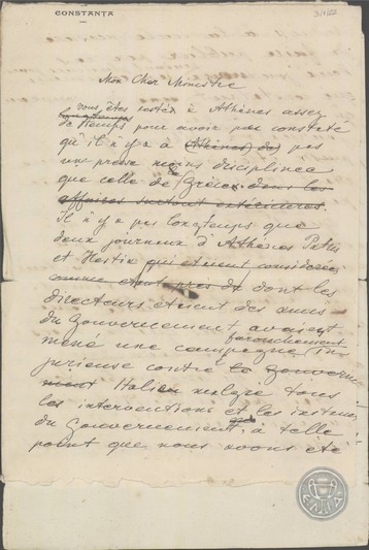 CONSTANȚA
Mon Cher Ministre
vous êtes resté à Athènes assez
longtemps
de temps pour avoir pu constaté
qu'il n'y a à (Athènes) de pas
une presse moins disciplinée
que celle de Grèce dans les
affaires surtout extérieures.
Il n'y a pas longtemps que
deux journaux d'Athènes Patris
et Hestia qui etaient considérés
comme etant près de dont les
directeurs etaient des amis
du Gouvernement avaient
farouchement
mené une campagne in
jurieuse contre le Gouverne
ment Italien malgré tous
les interventions et les
du Gouvernement, à telle
point que nous avons été